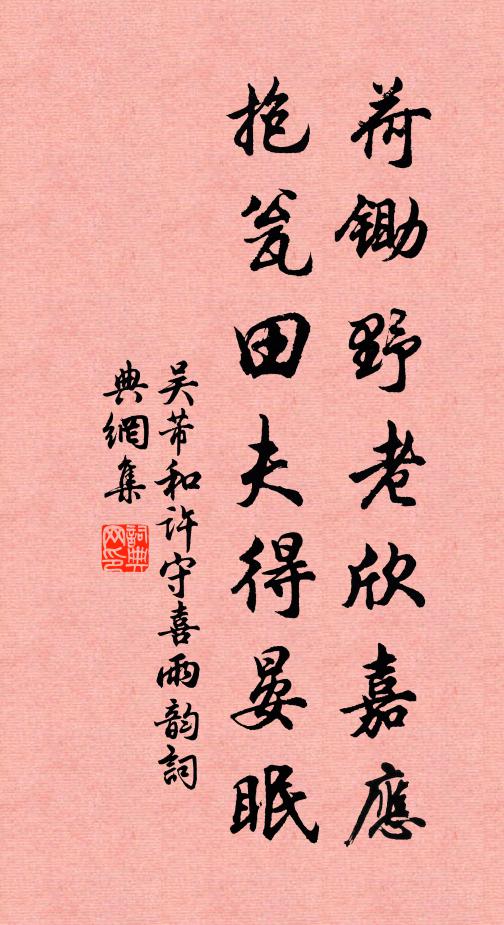 荷鋤野老欣嘉應
抱瓮田夫得晏眠
吴芾和许守喜雨韵詞
典網集
詞典網印